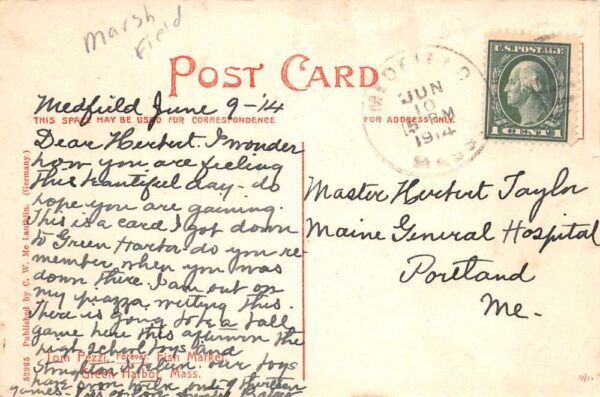 Marsh
Field
POST CARD
THIS SPACE MAY BE USED FOR CORRESPONDENCE
FOR ADDRESS ONLY.
U.S. POSTAGE
1 CENT 1
MEDFIELD
JUN
10
5 PM
1914
MASS
Medfield June 9-14
Dear Herbert. I wonder
how you are feeling
this beautiful day - do
hope you are gaining.
This is a card I got down
to Green Harbor do you re-
member when you was
down there I am out on
my piazza writing this.
There is going to be a ball
game here this afternoon the
high school boys and
Stoughton eleven. our boys
have won
games -
Master Herbert Taylor
Maine General Hospital
Portland
Me.
Tom Pezzi, Forever, Fish Market,
Green Harbor, Mass.
52985 Published by C. W. Mc Laughlin. (Germany.)